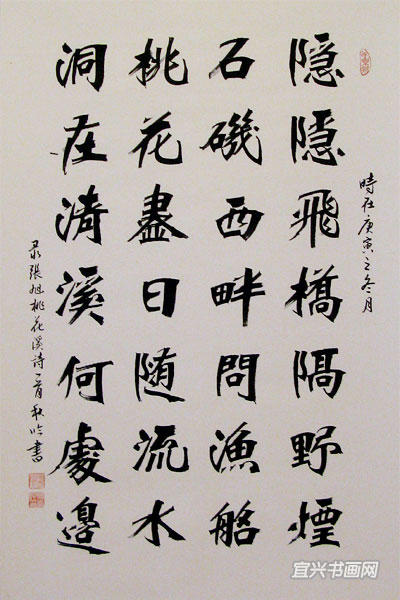 時在庚寅之冬月
隐隐飛橋隔野煙
石磯西畔問漁船
桃花盡日随流水
洞在清溪何處邊
录張旭桃花溪詩一首秋吟書
宜兴书画网